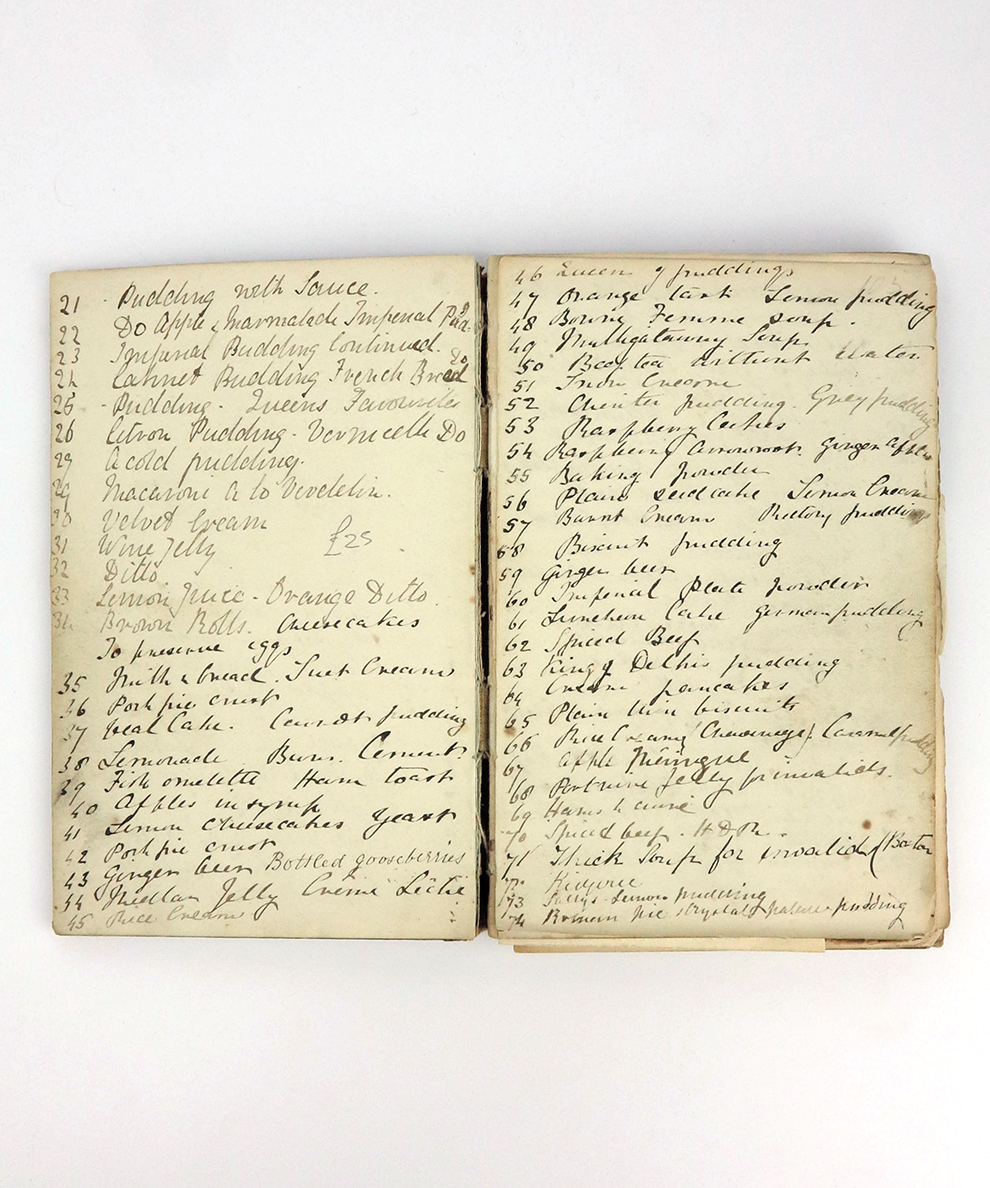 21 Pudding with Sauce.
22 Do Apple & Marmalade Imperial Pud
23 Imperial Pudding Continued.
24 Cabinet Pudding French Bread Do
25 Pudding. Queens Favourites
26 Citron Pudding. Vermicelli Do
29 A cold pudding.
29 Macaroni a la
30 Velvet Cream
£25
31 Wine Jelly
32 Ditto
33 Lemon Juice. Orange Ditto.
34 Brown Rolls. Cheesecakes
To preserve eggs
35 Milk & bread. Suet Creams
36 Pork pie crust
37 Veal Cake. Carrot pudding
38 Lemonade Cement
39 Fish omelette Ham toast
40 Apples in syrup
41 Lemon Cheesecakes Yeast
42 Pork pie crust
43 Ginger beer Bottled gooseberries
44 Medlar Jelly Crême
45 Rice Cream
46 Queen of puddings
47 Orange tart Lemon pudding
48 Bonne Femme soup.
49 Soup
50 Beef tea without water
51 Cream
52 Chester pudding.
53 Raspberry Cakes
54 Raspberry arrowroot. Ginger
55 Baking powder
56 Plain seedcake Lemon Cream
57 Burnt Cream Rectory pudding
58 Biscuit pudding
59 Ginger beer
60 Imperial Plate powder
61 Luncheon Cake german pudding
62 Spiced Beef
63 King of Delhis pudding
64 Cream pancakes
65 Plain thin biscuits
66 Rice Cream Caramel pudding
67 Apple Meringue
68 Portwine Jelly for invalids.
69 Hams to
70 Spiced beef. H.D.R.
71 Thick Soup for invalids
72
73 Lemon pudding
74 Roman pie Crystal palace pudding